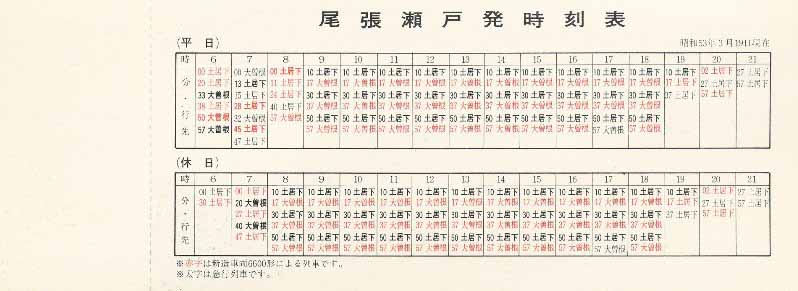 尾張瀬戸発時刻表
(平 日)
昭和53年3月19日現在
時 6 7 8 9 10 11 12 13 14 15 16 17 18 19 20 21
00 土居下 00 大曽根 00 土居下 10 土居下 10 土居下 10 土居下 10 土居下 10 土居下 10 土居下 10 土居下 10 土居下 10 土居下 10 土居下 10 土居下 02 土居下 27 土居下
20 土居下 13 土居下 11 土居下 17 大曽根 17 大曽根 17 大曽根 17 大曽根 17 大曽根 17 大曽根 17 大曽根 17 大曽根 17 大曽根 17 大曽根 17 土居下 27 土居下 57 土居下
33 大曽根 15 土居下 24 土居下 30 土居下 30 土居下 30 土居下 30 土居下 30 土居下 30 土居下 30 土居下 30 土居下 30 土居下 30 土居下 27 土居下 57 土居下
38 土居下 28 土居下 40 土居下 37 大曽根 37 大曽根 37 大曽根 37 大曽根 37 大曽根 37 大曽根 37 大曽根 37 大曽根 37 大曽根 37 大曽根
50 大曽根 32 大曽根 37 大曽根 50 土居下 50 土居下 50 土居下 50 土居下 50 土居下 50 土居下 50 土居下 50 土居下 50 土居下 50 土居下
57 大曽根 45 土居下 57 大曽根 57 大曽根 57 大曽根 57 大曽根 57 大曽根 57 大曽根 57 大曽根 57 大曽根 57 大曽根 57 大曽根
47 土居下
分・行先
(休 日)
時 6 7 8 9 10 11 12 13 14 15 16 17 18 19 20 21
00 土居下 00 土居下 10 土居下 10 土居下 10 土居下 10 土居下 10 土居下 10 土居下 10 土居下 10 土居下 10 土居下 10 土居下 10 土居下 10 土居下 02 土居下 27 土居下
30 土居下 20 大曽根 17 大曽根 17 大曽根 17 大曽根 17 大曽根 17 大曽根 17 大曽根 17 大曽根 17 大曽根 17 大曽根 17 大曽根 17 大曽根 17 土居下 27 土居下 57 土居下
27 土居下 30 土居下 30 土居下 30 土居下 30 土居下 30 土居下 30 土居下 30 土居下 30 土居下 30 土居下 30 土居下 30 土居下 37 土居下 57 土居下
40 大曽根 37 大曽根 37 大曽根 37 大曽根 37 大曽根 37 大曽根 37 大曽根 37 大曽根 37 大曽根 37 大曽根 37 大曽根 37 大曽根
47 土居下 50 土居下 50 土居下 50 土居下 50 土居下 50 土居下 50 土居下 50 土居下 50 土居下 50 土居下 50 土居下 50 土居下
57 大曽根 57 大曽根 57 大曽根 57 大曽根 57 大曽根 57 大曽根 57 大曽根 57 大曽根 57 大曽根 57 大曽根 57 大曽根
分・行先
※赤字は新造車両6600形による列車です。
※太字は急行列車です。